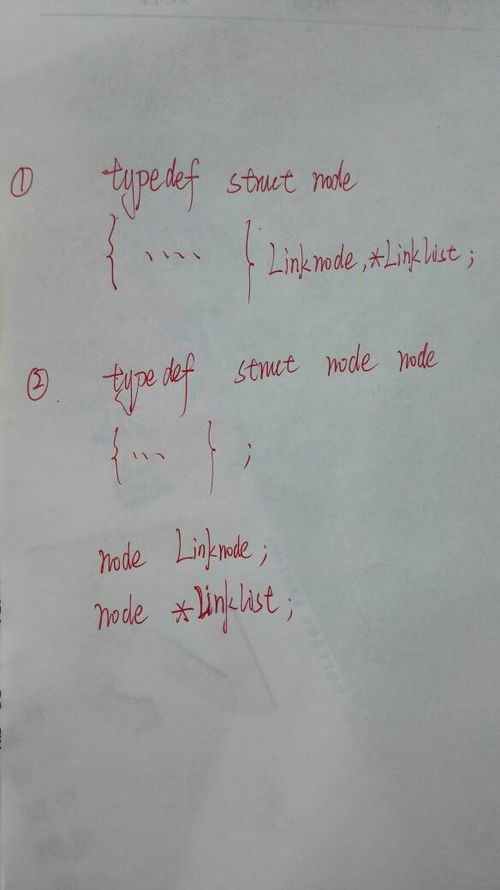 ① typedef struct node
{ .... } Linknode,*Linklist;
② typedef struct node node
{ ... } ;
node Linknode;
node *Linklist;